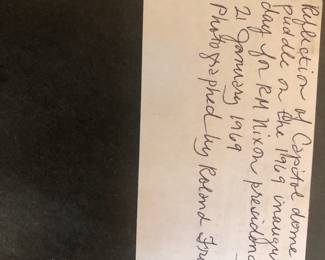 Reflection of Capitol dome
puddle on the 1969 inaugu
day for RM Nixon presiden
21 January 1969
Photographed by Roland